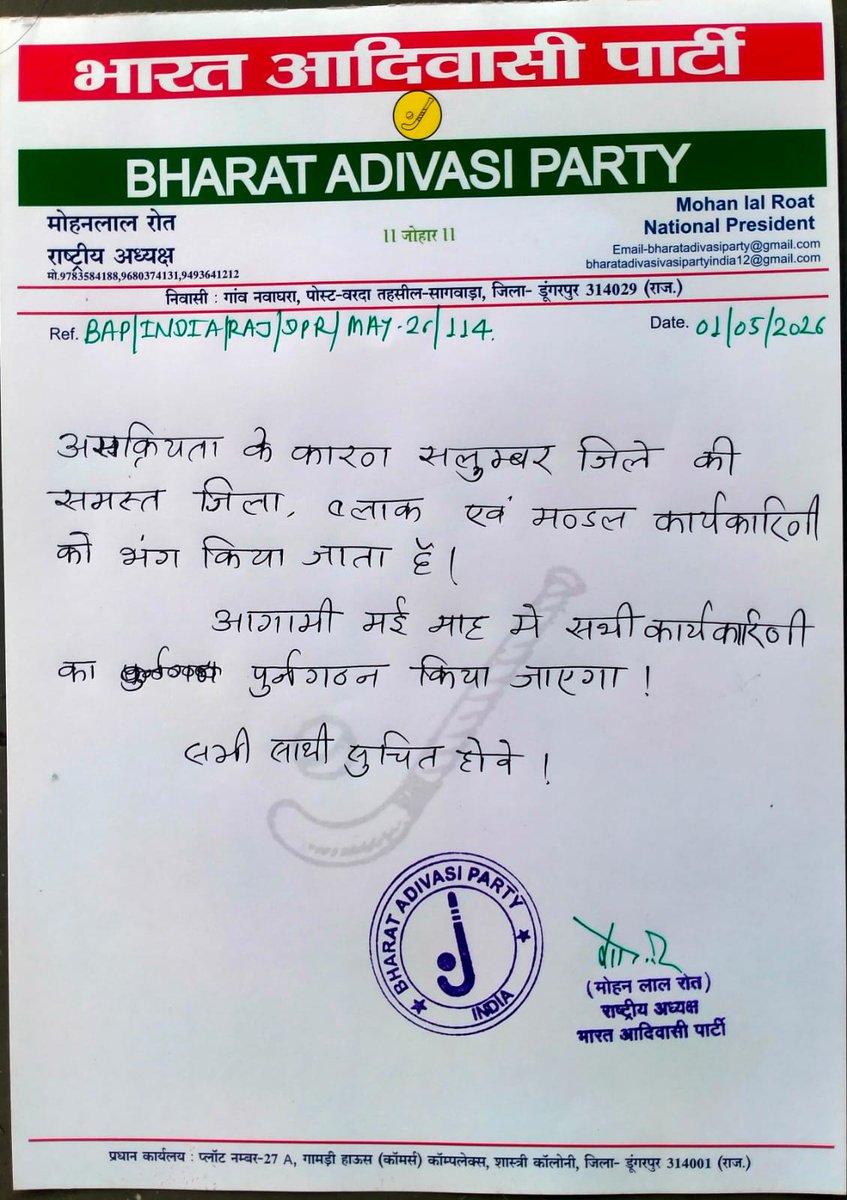 भारत आदिवासी पार्टी
BHARAT ADIVASI PARTY
मोहनलाल रोत
राष्ट्रीय अध्यक्ष
मो.9783584188,9680374131,9493641212
॥ जोहार ॥
Mohan lal Roat
National President
Email-bharatadivasiparty@gmail.com
bharatadivasivasipartyindia12@gmail.com
निवासी : गांव नवाघरा, पोस्ट-वरदा तहसील-सागवाड़ा, जिला- डूंगरपुर 314029 (राज.)
Ref. BAP/INDIA/RAJ/DPR/MAY-26/114.
Date. 01/05/2026
असक्रियता के कारण सलुम्बर जिले की
समस्त जिला, ब्लाक एवं मण्डल कार्यकारिणी
को भंग किया जाता है।
आगामी मई माह मे सभी कार्यकारिणी
का पुर्नगठन किया जाएगा !
सभी साथी सुचित होवे !
BHARAT ADIVASI PARTY
INDIA
(मोहन लाल रोत)
राष्ट्रीय अध्यक्ष
भारत आदिवासी पार्टी
प्रधान कार्यलय : प्लॉट नम्बर-27 A, गामड़ी हाऊस (कॉमर्स) कॉम्पलेक्स, शास्त्री कॉलोनी, जिला- डूंगरपुर 314001 (राज.)